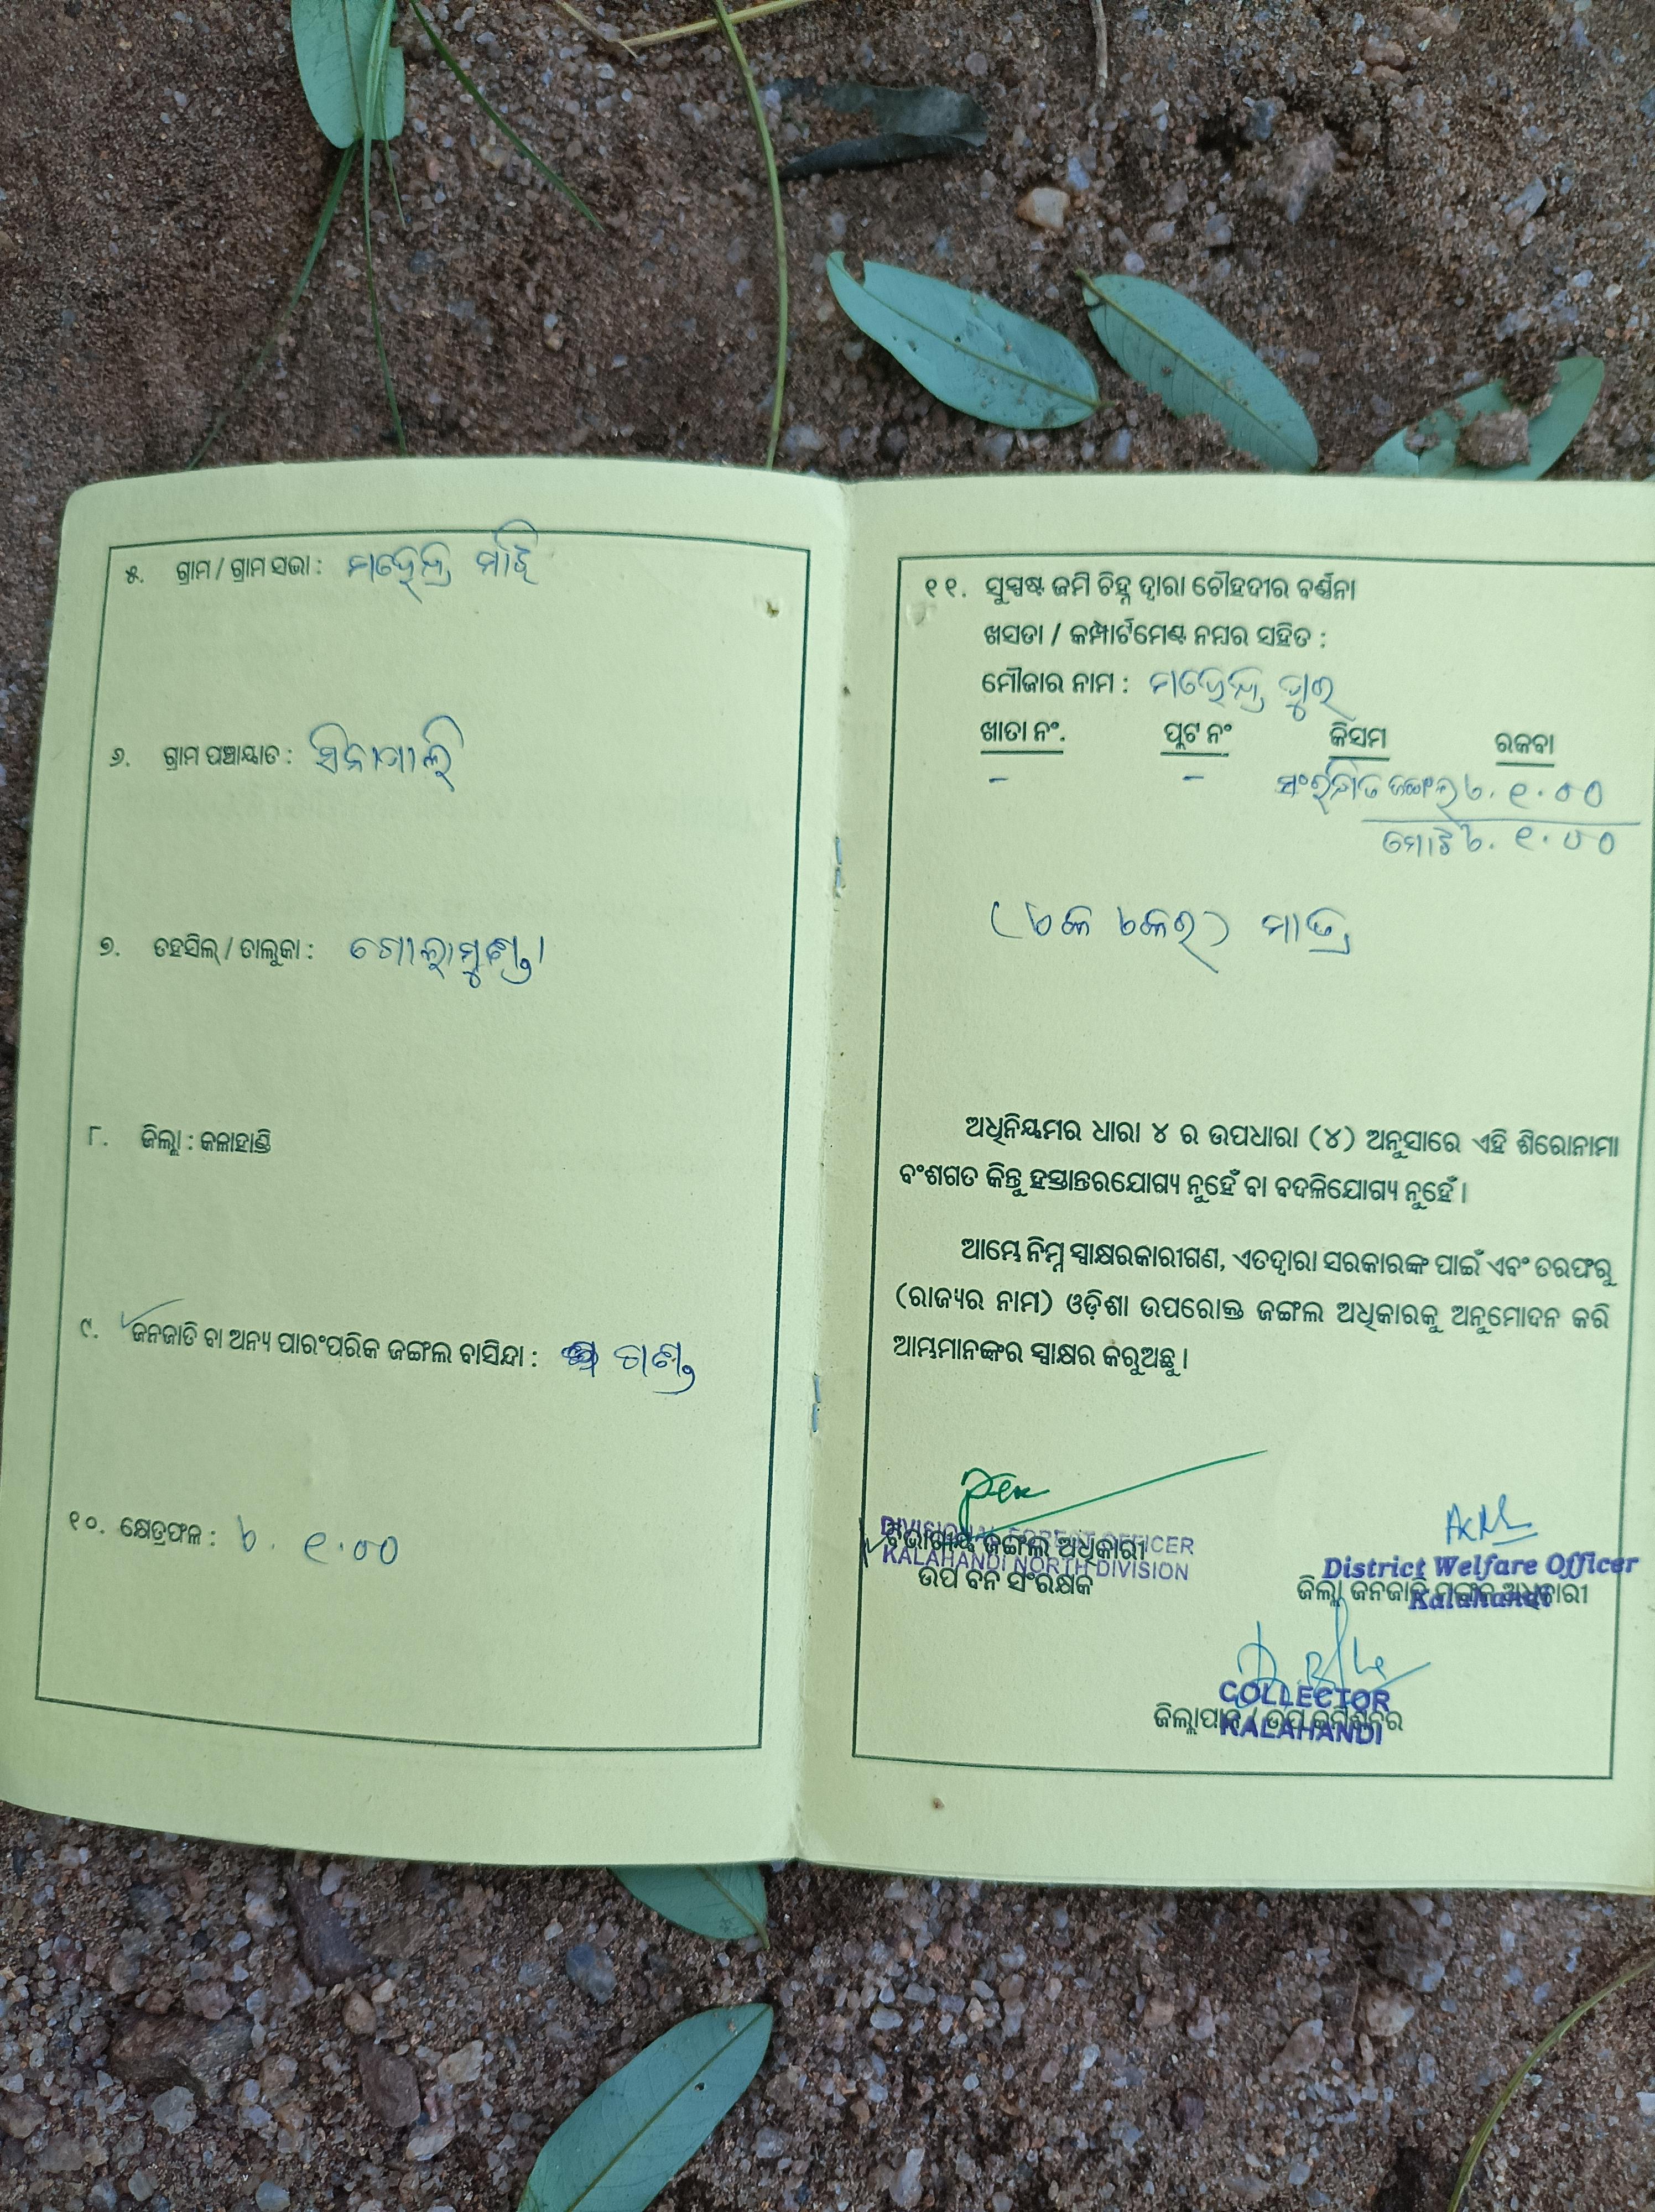 ୫. ଗ୍ରାମ / ଗ୍ରାମ ସଭା : ମହେନ୍ଦ୍ର ମାଝି
୬. ଗ୍ରାମ ପଞ୍ଚାୟାତ :
୭. ତହସିଲ୍ / ତାଲୁକା : ଗୋଲାମୁଣ୍ଡା
୮. ଜିଲ୍ଲା : କଳାହାଣ୍ଡି
୯. ଜନଜାତି ବା ଅନ୍ୟ ପାରଂପରିକ ଜଙ୍ଗଲ ବାସିନ୍ଦା : ଗଣ୍ଡ
୧୦. କ୍ଷେତ୍ରଫଳ : ଏ. ୧.୦୦
୧୧. ସୁସ୍ପଷ୍ଟ ଜମି ଚିହ୍ନ ଦ୍ଵାରା ଚୌହଦୀର ବର୍ଣ୍ଣନା
ଖସଡା / କମ୍ପାର୍ଟମେଣ୍ଟ ନମ୍ବର ସହିତ :
ମୌଜାର ନାମ : ମହେନ୍ଦ୍ର
ଖାତା ନଂ. ପ୍ଲଟ ନଂ କିସମ ରକବା
– – ସଂରକ୍ଷିତ ଜଙ୍ଗଲ ଏ. ୧.୦୦
ମୋଟ ଏ. ୧.୦୦
(ଏକ ଏକର) ମାତ୍ର
ଅଧିନିୟମର ଧାରା ୪ ର ଉପଧାରା (୪) ଅନୁସାରେ ଏହି ଶିରୋନାମା
ବଂଶଗତ କିନ୍ତୁ ହସ୍ତାନ୍ତରଯୋଗ୍ୟ ନୁହେଁ ବା ବଦଳିଯୋଗ୍ୟ ନୁହେଁ ।
ଆମ୍ଭେ ନିମ୍ନ ସ୍ୱାକ୍ଷରକାରୀଗଣ, ଏତଦ୍ୱାରା ସରକାରଙ୍କ ପାଇଁ ଏବଂ ତରଫରୁ
(ରାଜ୍ୟର ନାମ) ଓଡ଼ିଶା ଉପରୋକ୍ତ ଜଙ୍ଗଲ ଅଧିକାରକୁ ଅନୁମୋଦନ କରି
ଆମ୍ଭମାନଙ୍କର ସ୍ୱାକ୍ଷର କରୁଅଛୁ ।
DIVISIONAL FOREST OFFICER
ବିଭାଗୀୟ ଜଙ୍ଗଲ ଅଧିକାରୀ
KALAHANDI NORTH DIVISION
ଉପ ବନ ସଂରକ୍ଷକ
District Welfare Officer
ଜିଲ୍ଲା ଜନଜାତି ମଙ୍ଗଳ ଅଧିକାରୀ
Kalahandi
COLLECTOR
ଜିଲ୍ଲାପାଳ / ଉପ କମିଶନର
KALAHANDI